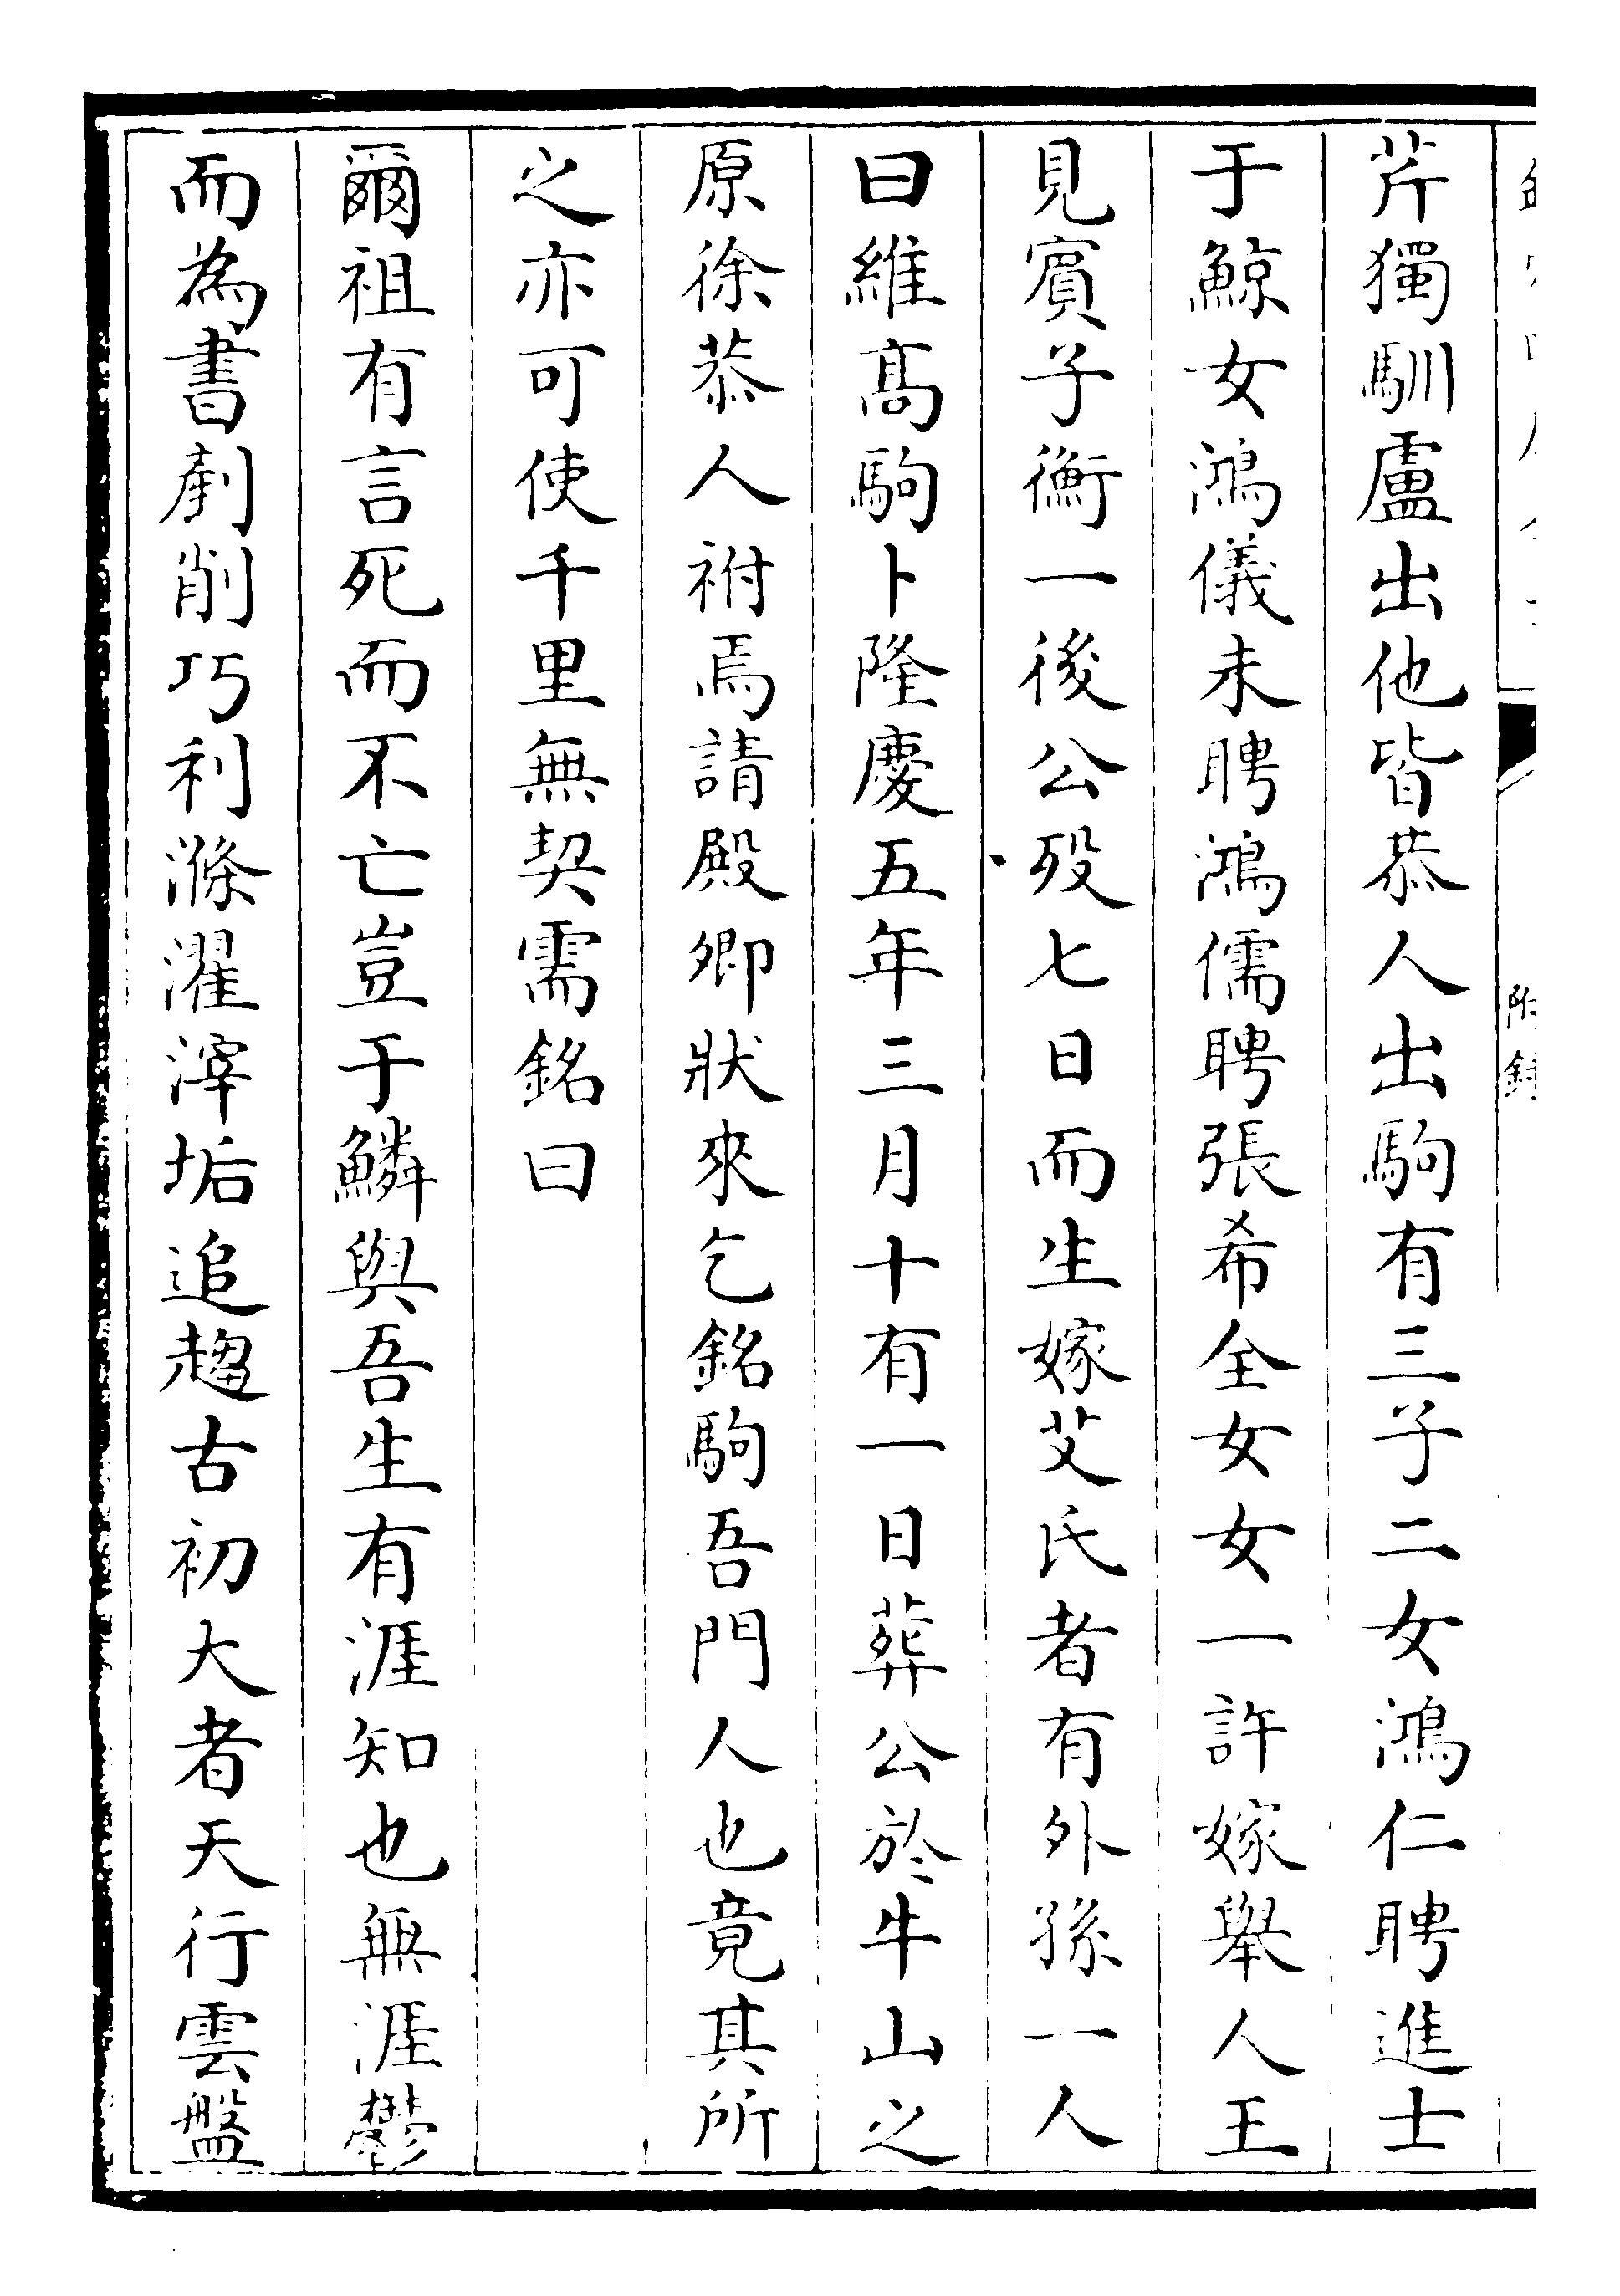 芹獨馴盧出他皆恭人出駒有三子二女鴻仁聘進士
于鯨女鴻儀未聘鴻儒聘張希全女女一許嫁舉人王
見賓子衡一後公歿七日而生嫁艾氏者有外孫一人
曰維高駒卜隆慶五年三月十有一日葬公於牛山之
原徐恭人祔焉請殿卿狀來乞銘駒吾門人也竟其所
之亦可使千里無契需銘曰
爾祖有言死而不亡豈于鱗與吾生有涯知也無涯鬱
而為書劑削巧利滌濯滓垢追趨古初大者天行雲盤
附錄